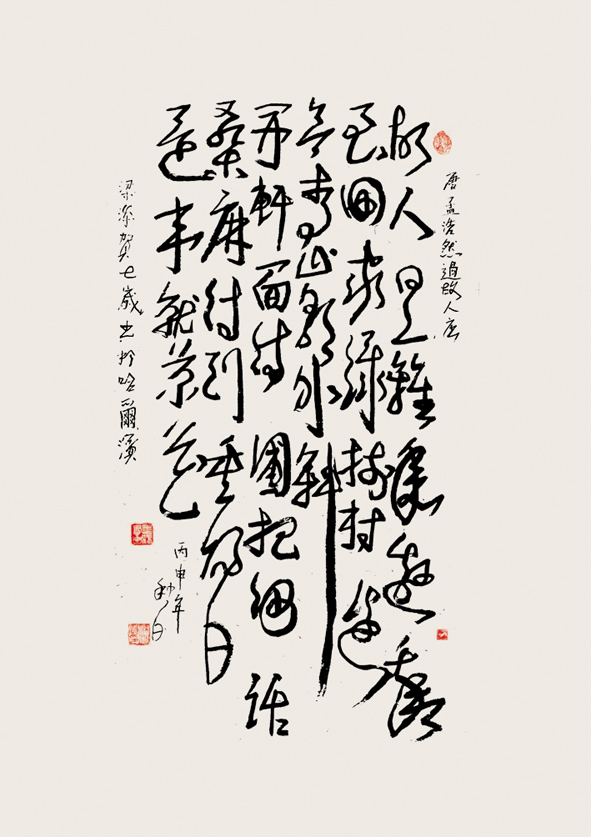 唐孟浩然過故人庄
故人具雞黍邀我
至田家綠樹村邊
合青山郭外斜
开軒面場圃把酒話
桑麻待到重陽日
還来就菊花
丙申年
秋日
梁賀七歲书於哈爾濱